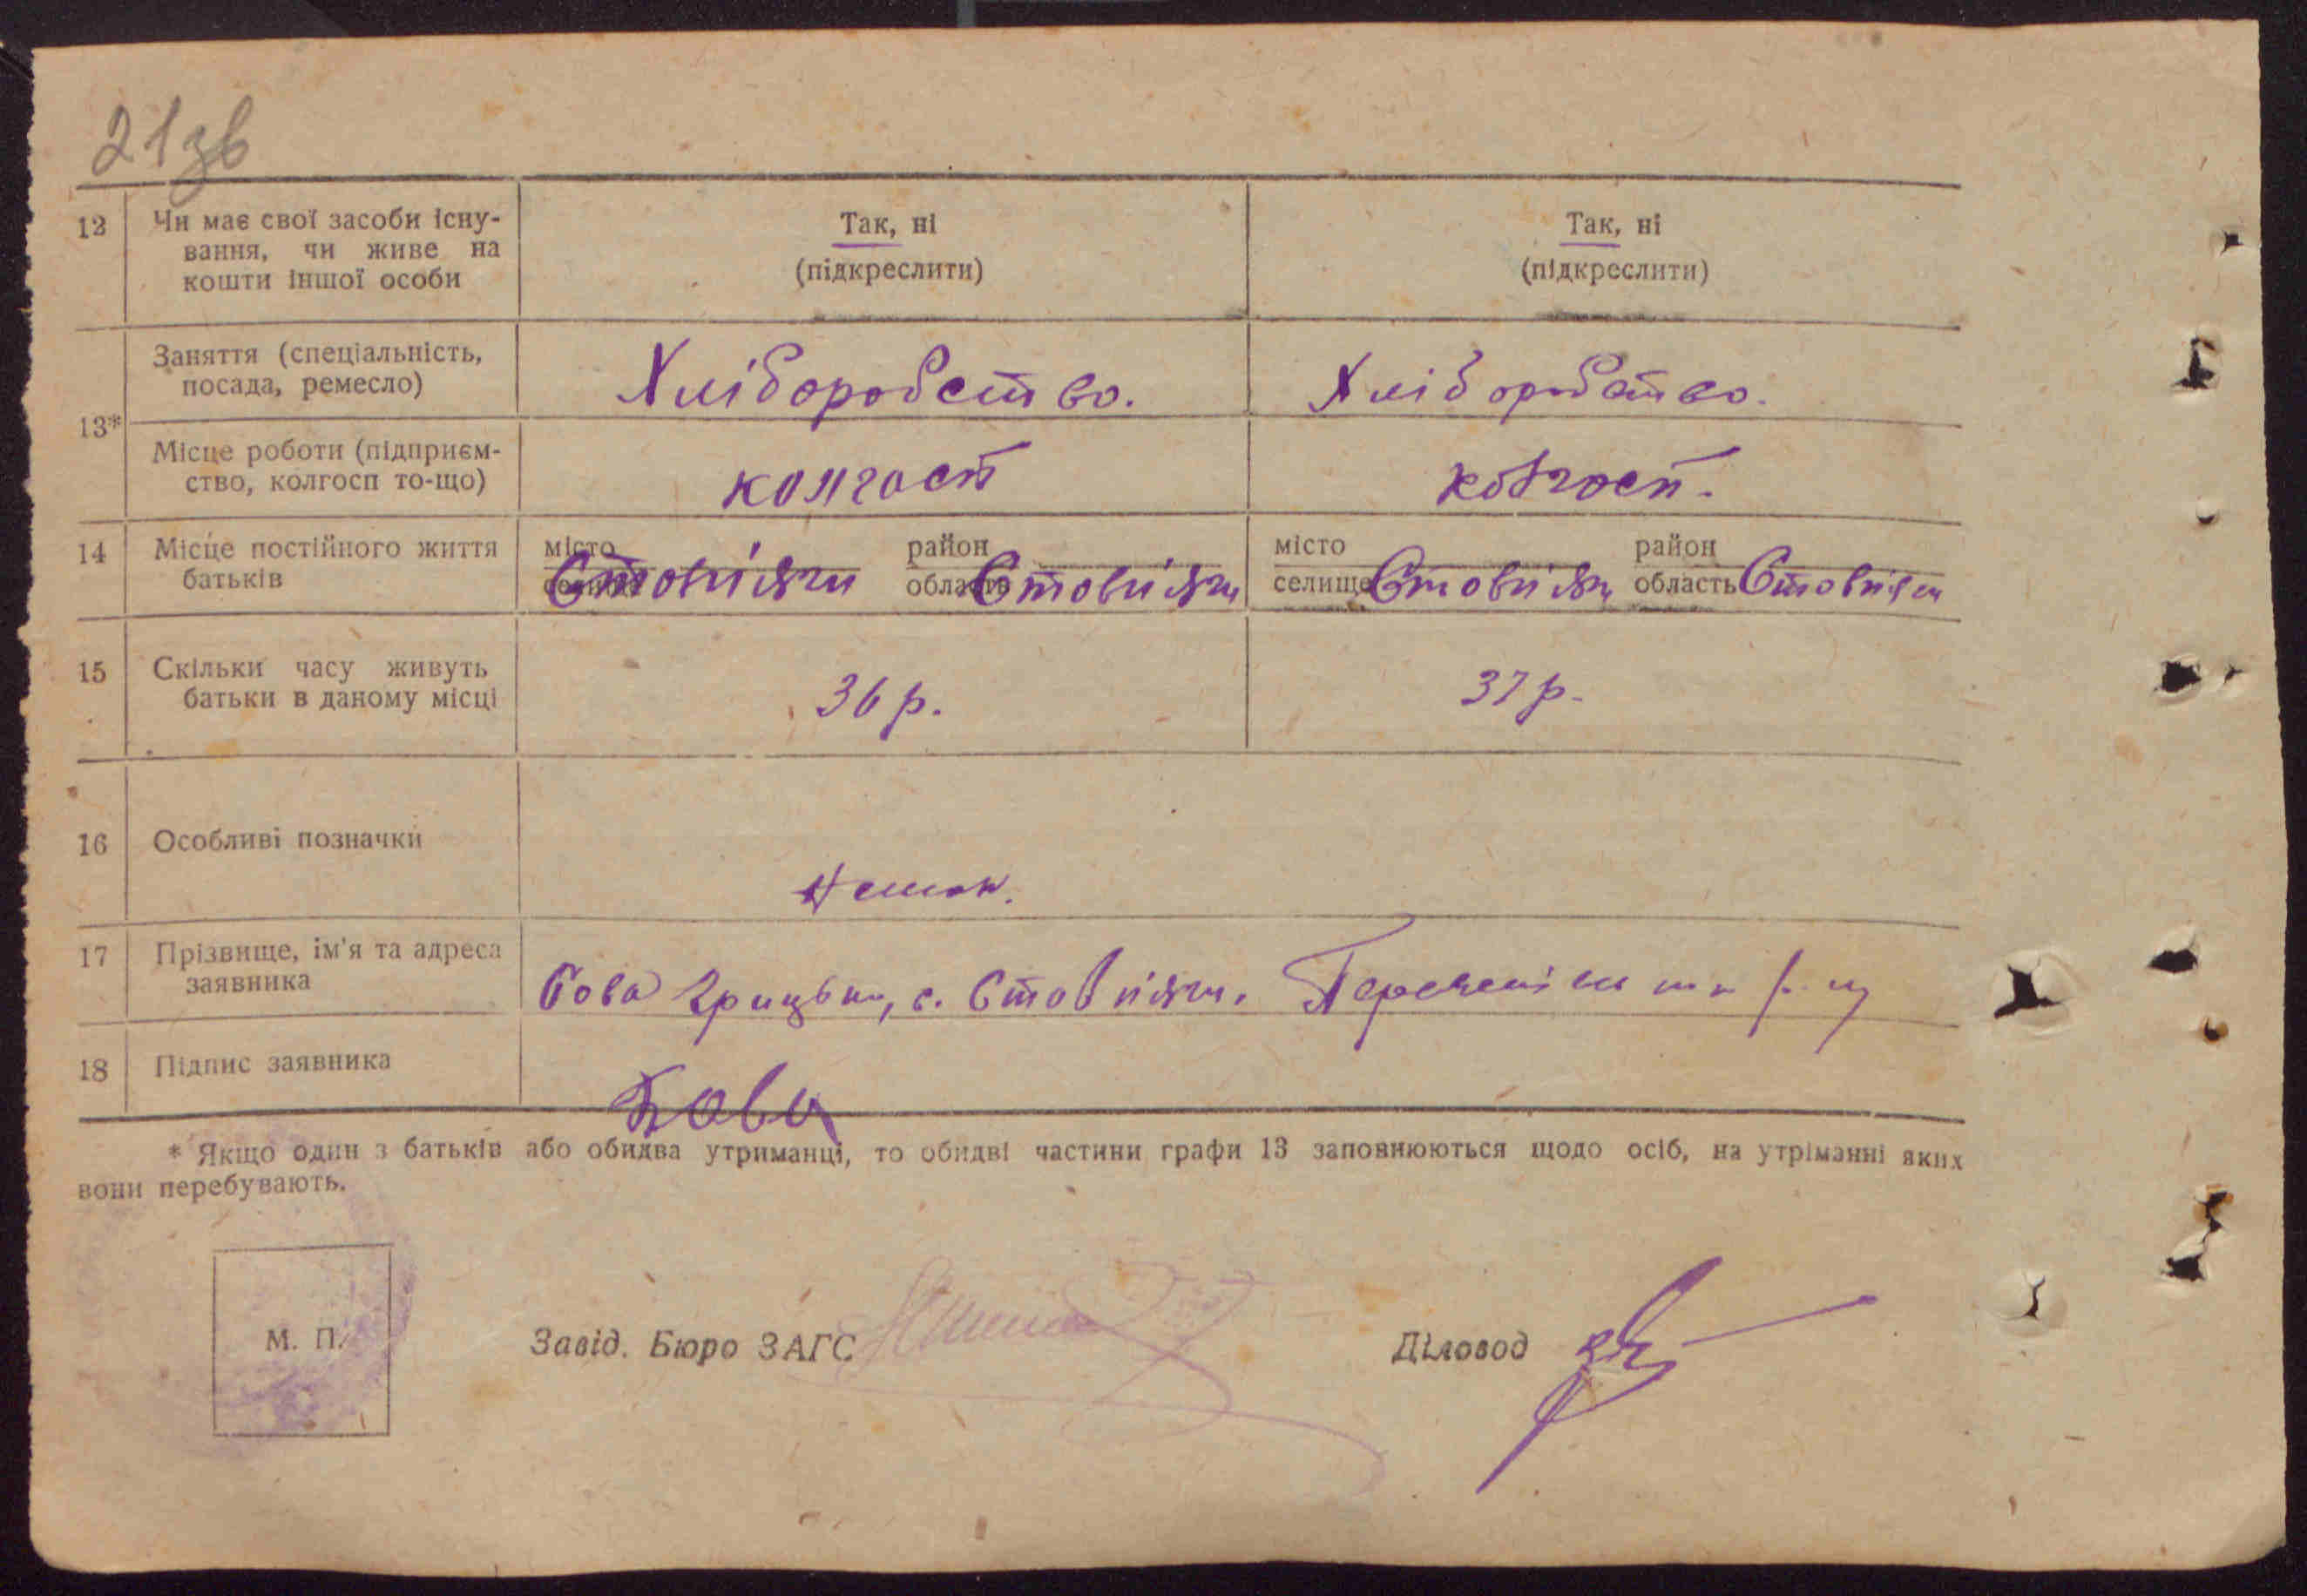 21зв
12 Чи має свої засоби існу-
вання, чи живе на
кошти іншої особи
Так, ні
(підкреслити)
Так, ні
(підкреслити)
13*
Заняття (спеціальність,
посада, ремесло)
Хліборобство.
Хліборобство.
Місце роботи (підприєм-
ство, колгосп то-що)
колгосп
колгосп.
14 Місце постійного життя
батьків
місто
селище
район
область
місто
селище
район
область
15 Скільки часу живуть
батьки в даному місці
36 р.
37 р.
16 Особливі позначки
17 Прізвище, ім'я та адреса
заявника
Сова Грицько, с.
18 Підпис заявника
Сова
* Якщо один з батьків або обидва утриманці, то обидві частини графи 13 заповнюються щодо осіб, на утріманні яких
вони перебувають.
М. П.
Завід. Бюро ЗАГС
Діловод